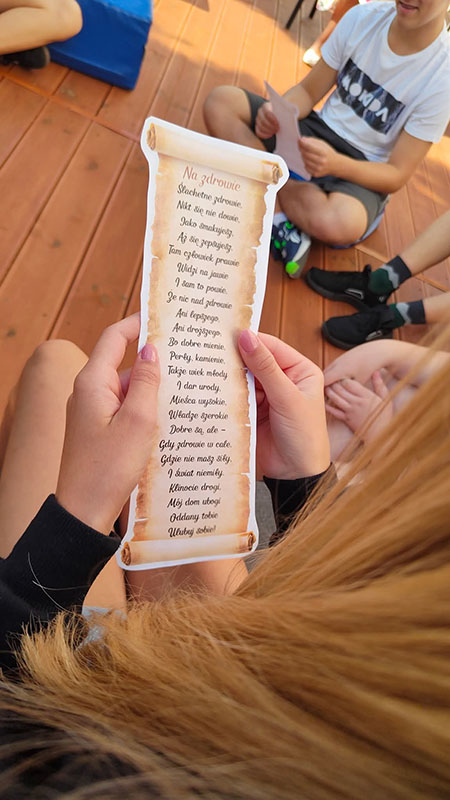 Na zdrowie
Ślachetne zdrowie,
Nikt się nie dowie,
Jako smakujesz,
Aż się zepsujesz.
Tam człowiek prawie
Widzi na jawie
I sam to powie,
Że nic nad zdrowie
Ani lepszego,
Ani droższego;
Bo dobre mienie,
Perły, kamienie,
Także wiek młody
I dar urody,
Mieśca wysokie,
Władze szerokie
Dobre są, ale –
Gdy zdrowie w cale.
Gdzie nie masz siły,
I świat niemiły.
Klinocie drogi,
Mój dom ubogi
Oddany tobie
Ulubuj sobie!